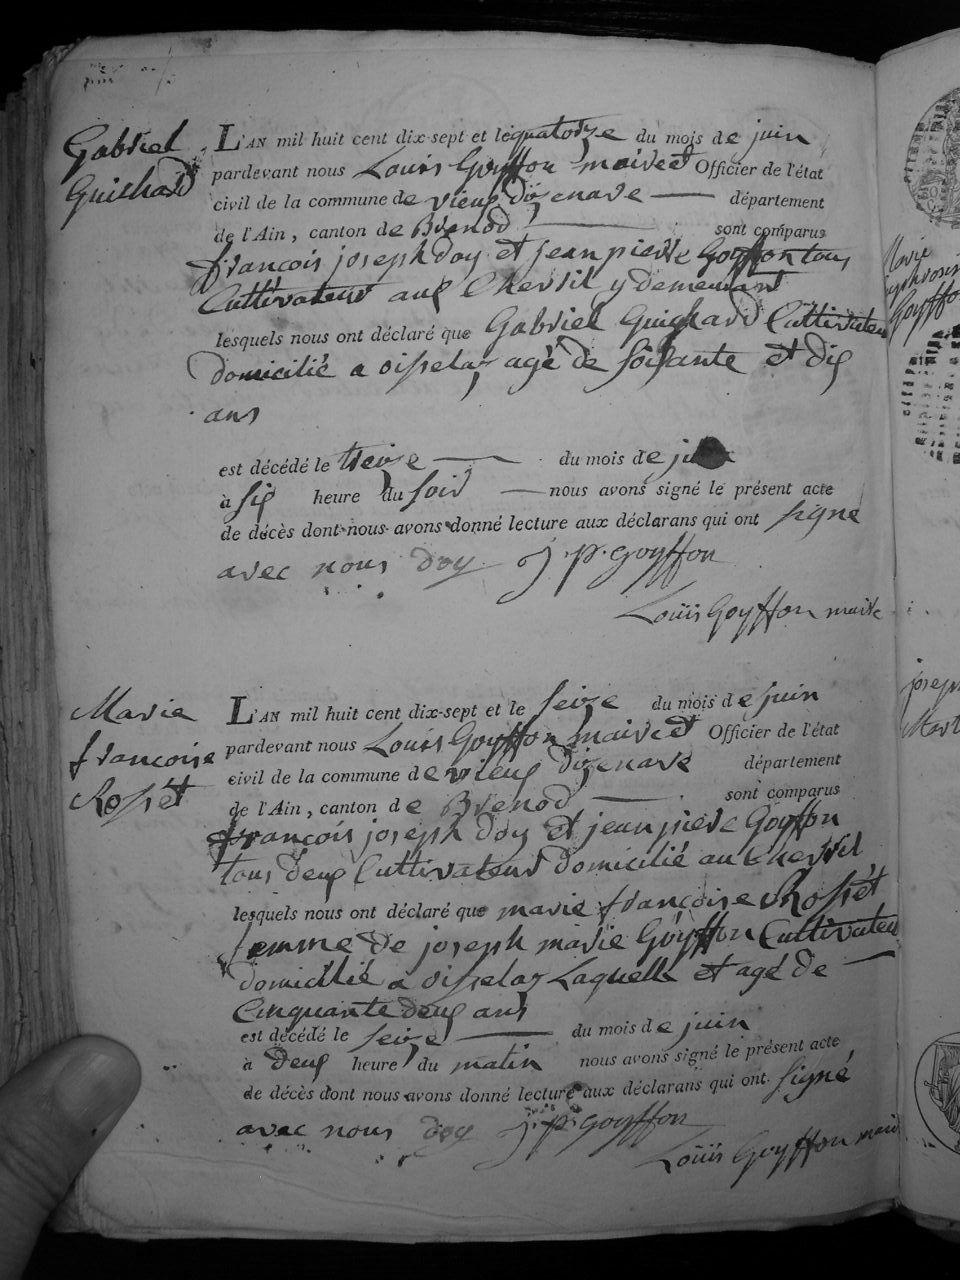 Gabriel
Guichard
L'AN mil huit cent dix-sept et le quatorze du mois de juin
pardevant nous Louis Goyffon maire et Officier de l'état
civil de la commune de vieux dizenave département
de l'Ain, canton de Brenod sont comparus
françois joseph doy et jean pierre Goyffon tous
Cultivateur aux Chevril y demeurant
lesquels nous ont déclaré que Gabriel Guichard Cultivateur
domicilié a oisselaz agé de soisante et dix
ans
est décédé le treize du mois de juin
à six heure du soir nous avons signé le présent acte
de décès dont nous avons donné lecture aux déclarans qui ont signé
avec nous doy j. p. goyffon
Louïs Goyffon maire
Marie
françoise
Rossét
L'AN mil huit cent dix-sept et le seize du mois de juin
pardevant nous Louis Goyffon maire et Officier de l'état
civil de la commune de vieux dizenave département
de l'Ain, canton de Brenod sont comparus
françois joseph doy et jean piere Goyffon
tous deux Cultivateur domicilié au Chevril
lesquels nous ont déclaré que marie françoise Rossét
femme de joseph marie Goyffon Cultivateur
domicilié a oisselaz Laquelle et agé de
Cinquante deux ans
est décédé le seize du mois de juin
à deux heure du matin nous avons signé le présent acte
de décès dont nous avons donné lecture aux déclarans qui ont signé
avec nous doy j. p. goyffon
Louïs Goyffon maire
Marie
Goyffo
joseph
Mart